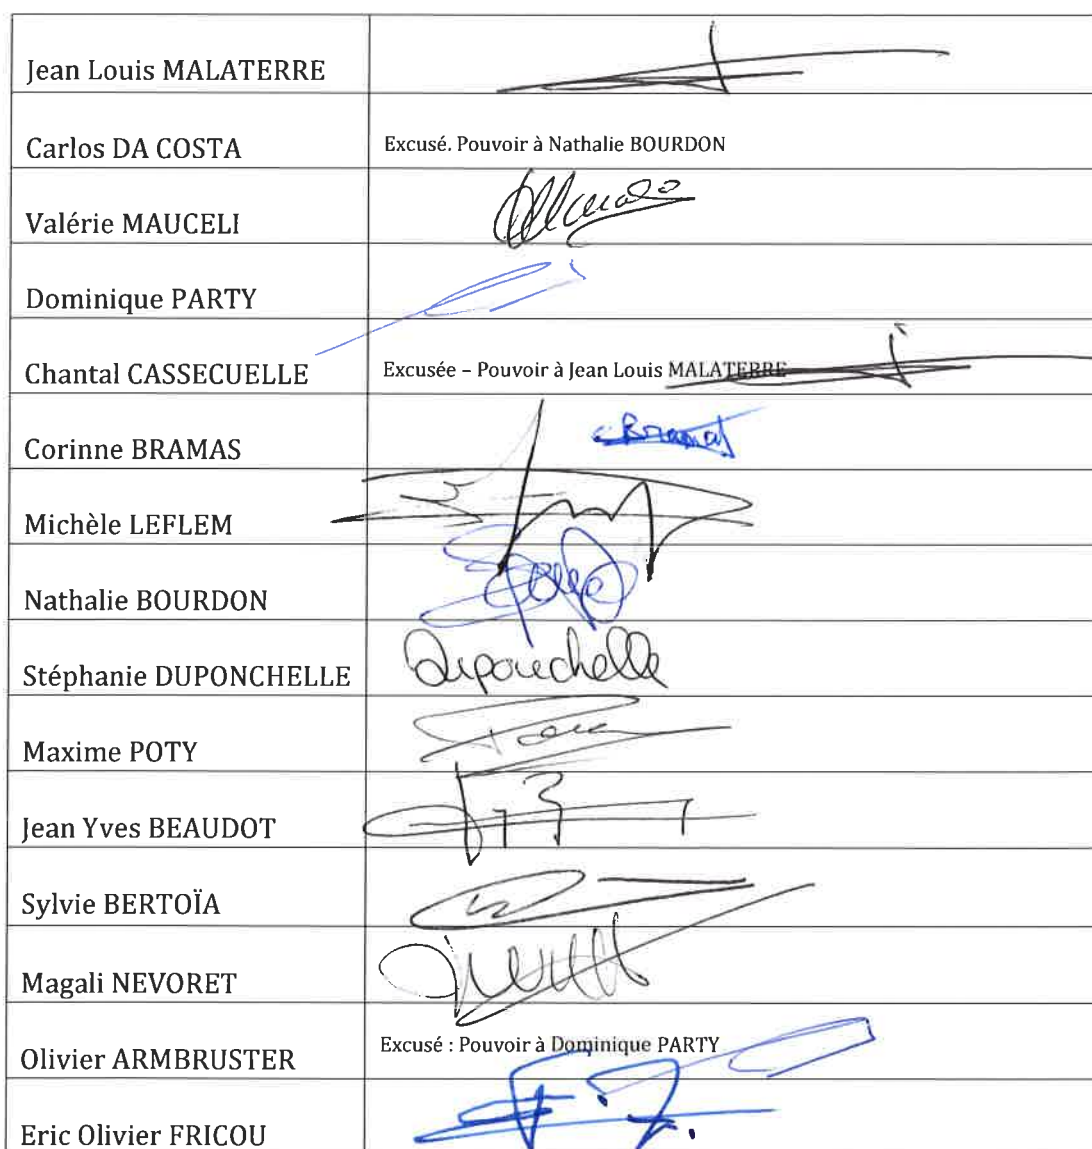 Jean Louis MALATERRE
Carlos DA COSTA
Excusé. Pouvoir à Nathalie BOURDON
Valérie MAUCELI
Dominique PARTY
Chantal CASSECUELLE
Excusée – Pouvoir à Jean Louis MALATERRE
Corinne BRAMAS
Michèle LEFLEM
Nathalie BOURDON
Stéphanie DUPONCHELLE
Duponchelle
Maxime POTY
Jean Yves BEAUDOT
Sylvie BERTOÏA
Magali NEVORET
Olivier ARMBRUSTER
Excusé : Pouvoir à Dominique PARTY
Eric Olivier FRICOU